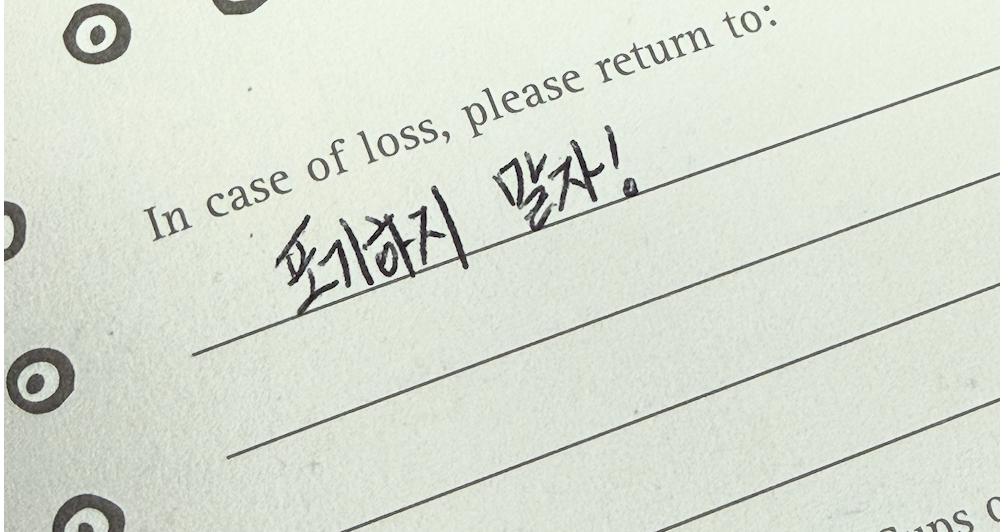 In case of loss, please return to:
포기하지 말자!